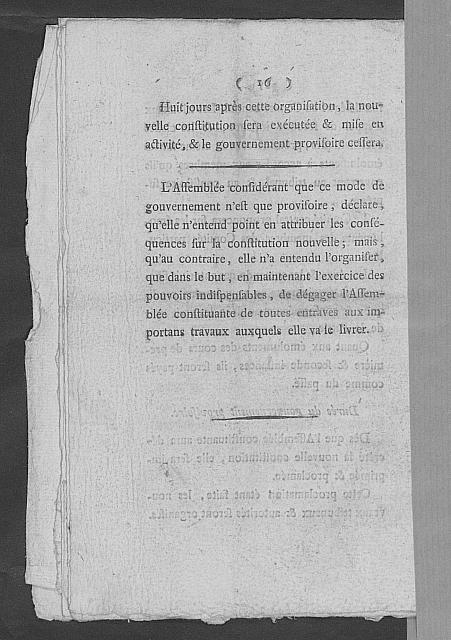 ( 16 )
Huit jours après cette organiſation, la nou-
velle conſtitution ſera exécutée & miſe en
activité, & le gouvernement proviſoire ceſſera.
L'Aſſemblée conſidérant que ce mode de
gouvernement n'eſt que proviſoire, déclare,
qu'elle n'entend point en attribuer les conſé-
quences ſur la conſtitution nouvelle; mais,
qu'au contraire, elle n'a entendu l'organiſer,
que dans le but, en maintenant l'exercice des
pouvoirs indiſpenſables, de dégager l'Aſſem-
blée conſtituante de toutes entraves aux im-
portans travaux auxquels elle va ſe livrer.